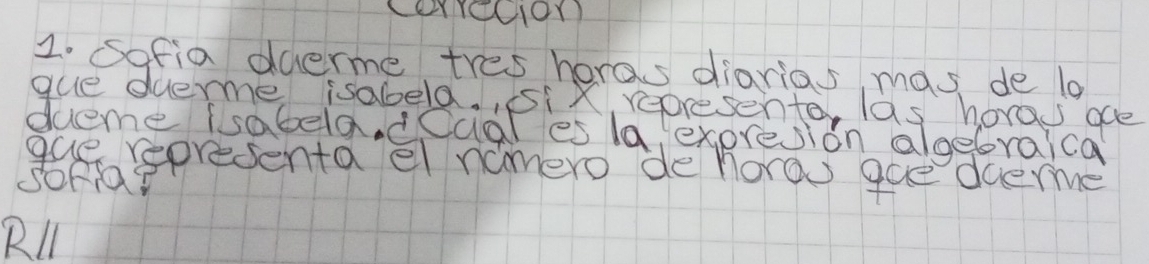 correcion
1. Sofia duerme tres horas diarias mas de lo
que duerme isabela. si X representa las horas que
dueme isabela. ¿Cual es la expresión algebraica
que representa el número de horas que duerme
sofia?
R//